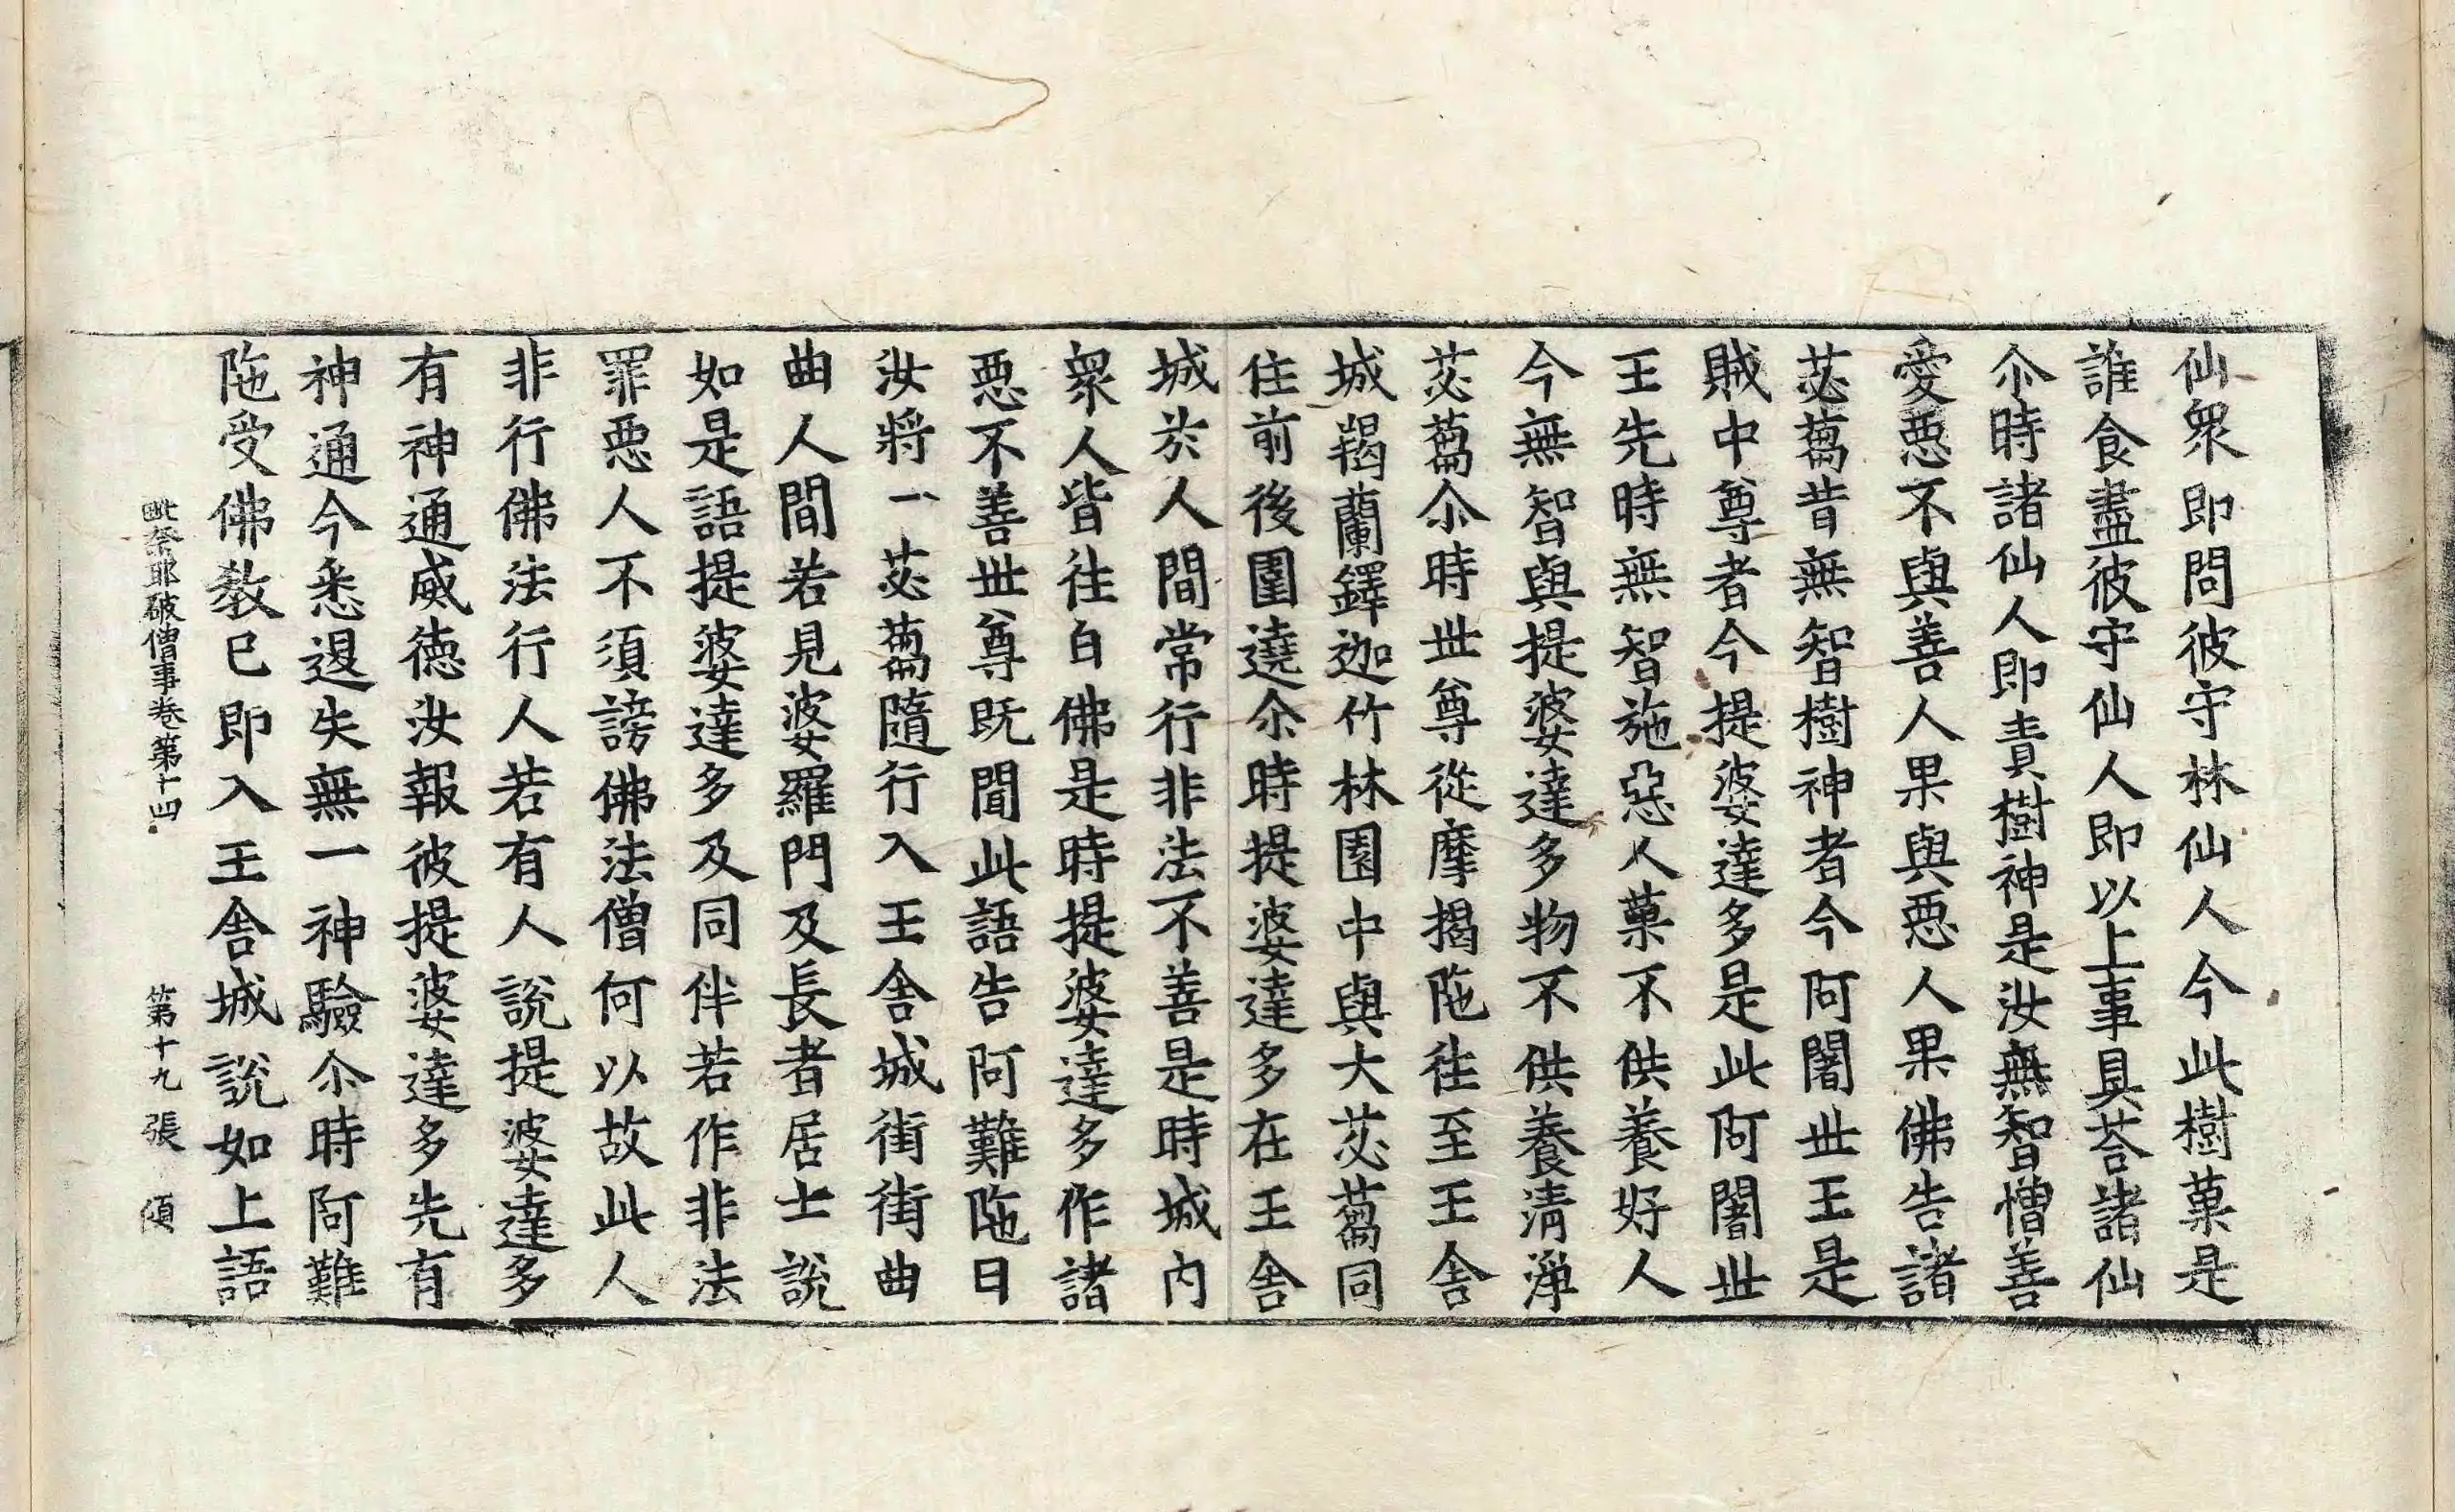 仙衆即問彼守林仙人今此樹菓是
誰食盡彼守仙人即以上事具荅諸仙
尒時諸仙人即責樹神是汝無智憎善
愛悪不與善人果與悪人果佛告諸
苾蒭昔無智樹神者今阿闍世王是
賊中尊者今提婆達多是此阿闍世
王先時無智施惡人菓不供養好人
今無智與提婆達多物不供養清淨
苾蒭尒時世尊從摩揭陁往至王舍
城羯蘭鐸迦竹林園中與大苾蒭同
住前後圍遶尒時提婆達多在王舍
城於人間常行非法不善是時城內
衆人皆往白佛是時提婆達多作諸
悪不善世尊既聞此語告阿難陁曰
汝將一苾蒭隨行入王舍城街街曲
曲人間若見婆羅門及長者居士說
如是語提婆達多及同伴若作非法
罪惡人不須謗佛法僧何以故此人
非行佛法行人若有人說提婆達多
有神通威德汝報彼提婆達多先有
神通今悉退失無一神驗尒時阿難
陁受佛教已即入王舍城說如上語
毗奈耶破僧事卷第十四 第十九張 傾